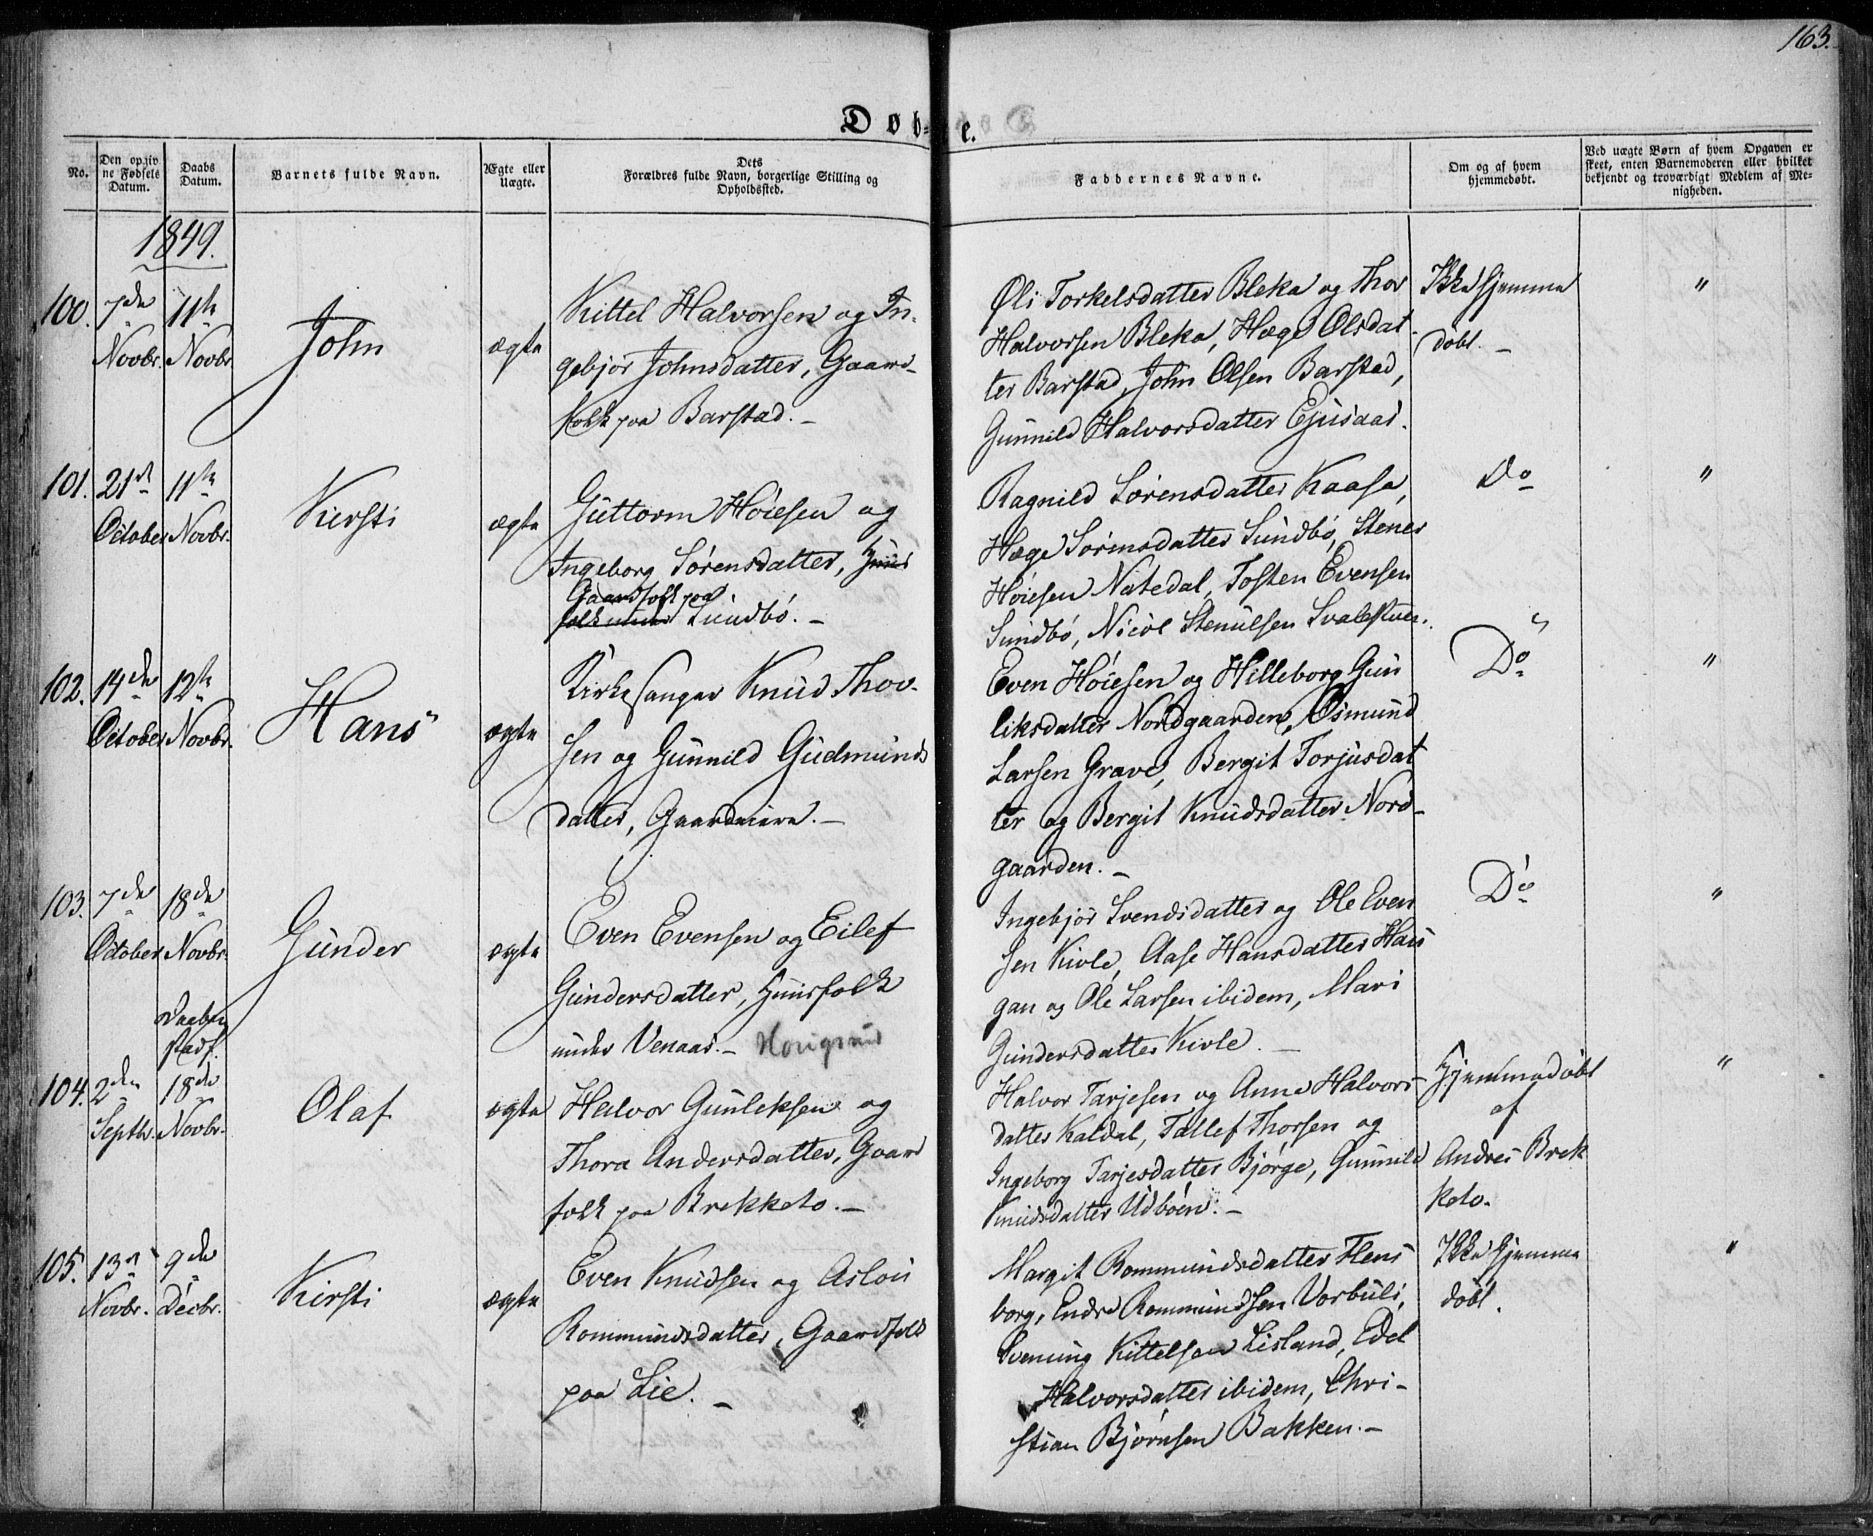 163.
Døb-
e.
No.
Den opgiv
ne Fødsels
Datum.
Daabs
Datum.
Barnets fulde Navn.
Ægte eller
Uægte.
Dets
Forældres fulde Navn, borgerlige Stilling og
Opholdssted.
Faddernes Navne.
Om og af hvem
hjemmedøbt.
Ved uægte Børn af hvem Opgaven er
skeet, enten Barnemoderen eller hvilket
bekjendt og troværdigt Medlem af Me-
nigheden.
1849.
100.
7de
Novbr.
11te
Novbr
John
ægte
Kittel Halvorsen og In-
gebjør Johnsdatter, Gaard-
folk paa Barstad. -
Øli Torkelsdatter Bleka og Thor
Halvorsen Bleka, Hæge Olsdat-
ter Barstad, John Olsen Barstad,
Gunnild Halvorsdatter Ejusaas.
Ikke hjemme
døbt. -
"
101.
21de
October
11te
Novbr.
Kirsti
ægte
Guttorm Høiesen og
Ingeborg Sørensdatter, Huus
Gaardfolk paa
folk under Sundbø. -
Ragnild Sørensdatter Kaasa,
Hæge Sørensdatter Sundbø, Stener
Høiesen Natedal, Tosten Evensen
Sundbø, Nicol Stenulsen Svalestuen.
Do
"
102.
14de
October
12te
Novbr.
Hans
ægte
Kirkesanger Knud Thor-
sen og Gunnild Gudmunds
datter, Gaardeiere. -
Even Høiesen og Hilleborg Gun
liksdatter Nordgaarden, Osmund
Larsen Grave, Bergit Torjusdat
ter og Bergit Knudsdatter Nord-
gaarden. -
Do
"
103.
7de
October
18de
Novbr.
Gunder
ægte
Even Evensen og Eilef
Gundersdatter, Huusfolk
under Venaas. -
Ingebjør Svendsdatter og Ole Even
sen Kivle, Aase Hansdatter Hau
gan og Ole Larsen ibidem, Mari
Gundersdatter Kivle. -
Do
"
Daaben
stadf.
104.
2den
Septbr.
18de
Novbr.
Olaf
ægte
Halvor Gunleksen og
Thora Andersdatter, Gaard
folk paa Brekketo. -
Halvor Tarjesen og Anne Halvors-
datter Kaldal, Tallef Thorsen og
Ingeborg Tarjesdatter Bjørge, Gunnild
Knudsdatter Udbøen. -
Hjemmedøbt
af
Andres Brek
keto.
"
105.
13de
Novbr.
9de
Decbr.
Kirsti
ægte
Even Knudsen og Aslou
Rommundsdatter, Gaardfolk
paa Lie. -
Margit Rommundsdatter Flens
borg, Endre Rommundsen Vorbuli,
Svenung Kittelsen Lisland, Edel
Halvorsdatter ibidem, Chri-
stian Bjørnsen Bakken. -
Ikke hjemme
døbt.
"